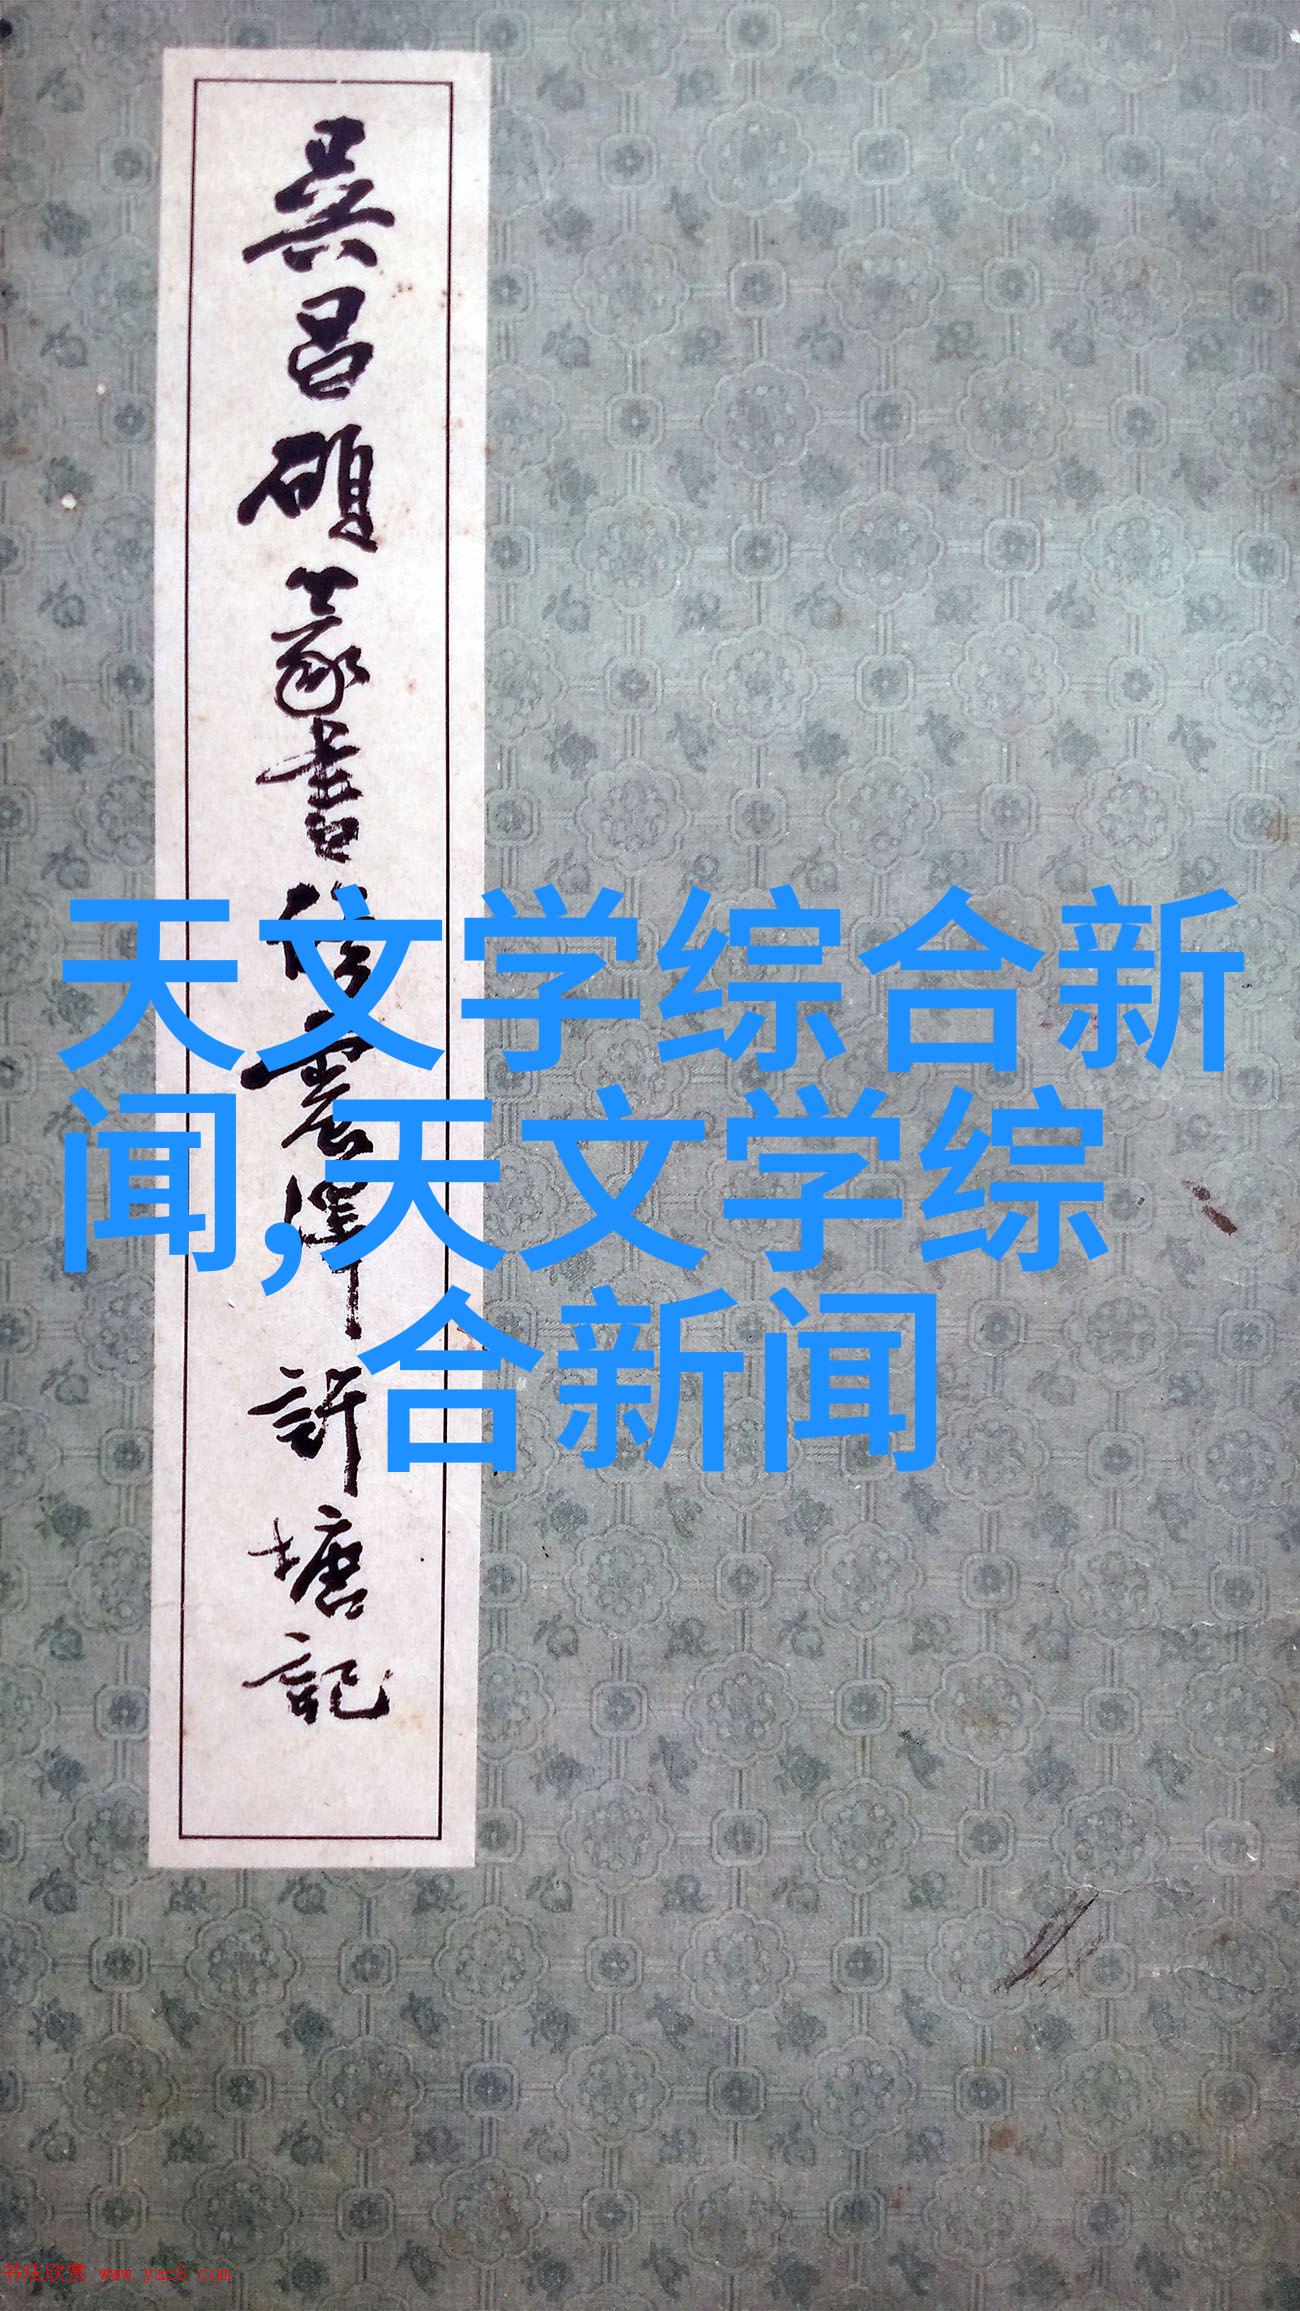 吳昌碩篆書修震澤許塘記
天文学综合新
闻,天文学综
合新闻
书法欣赏 www.yac8.com